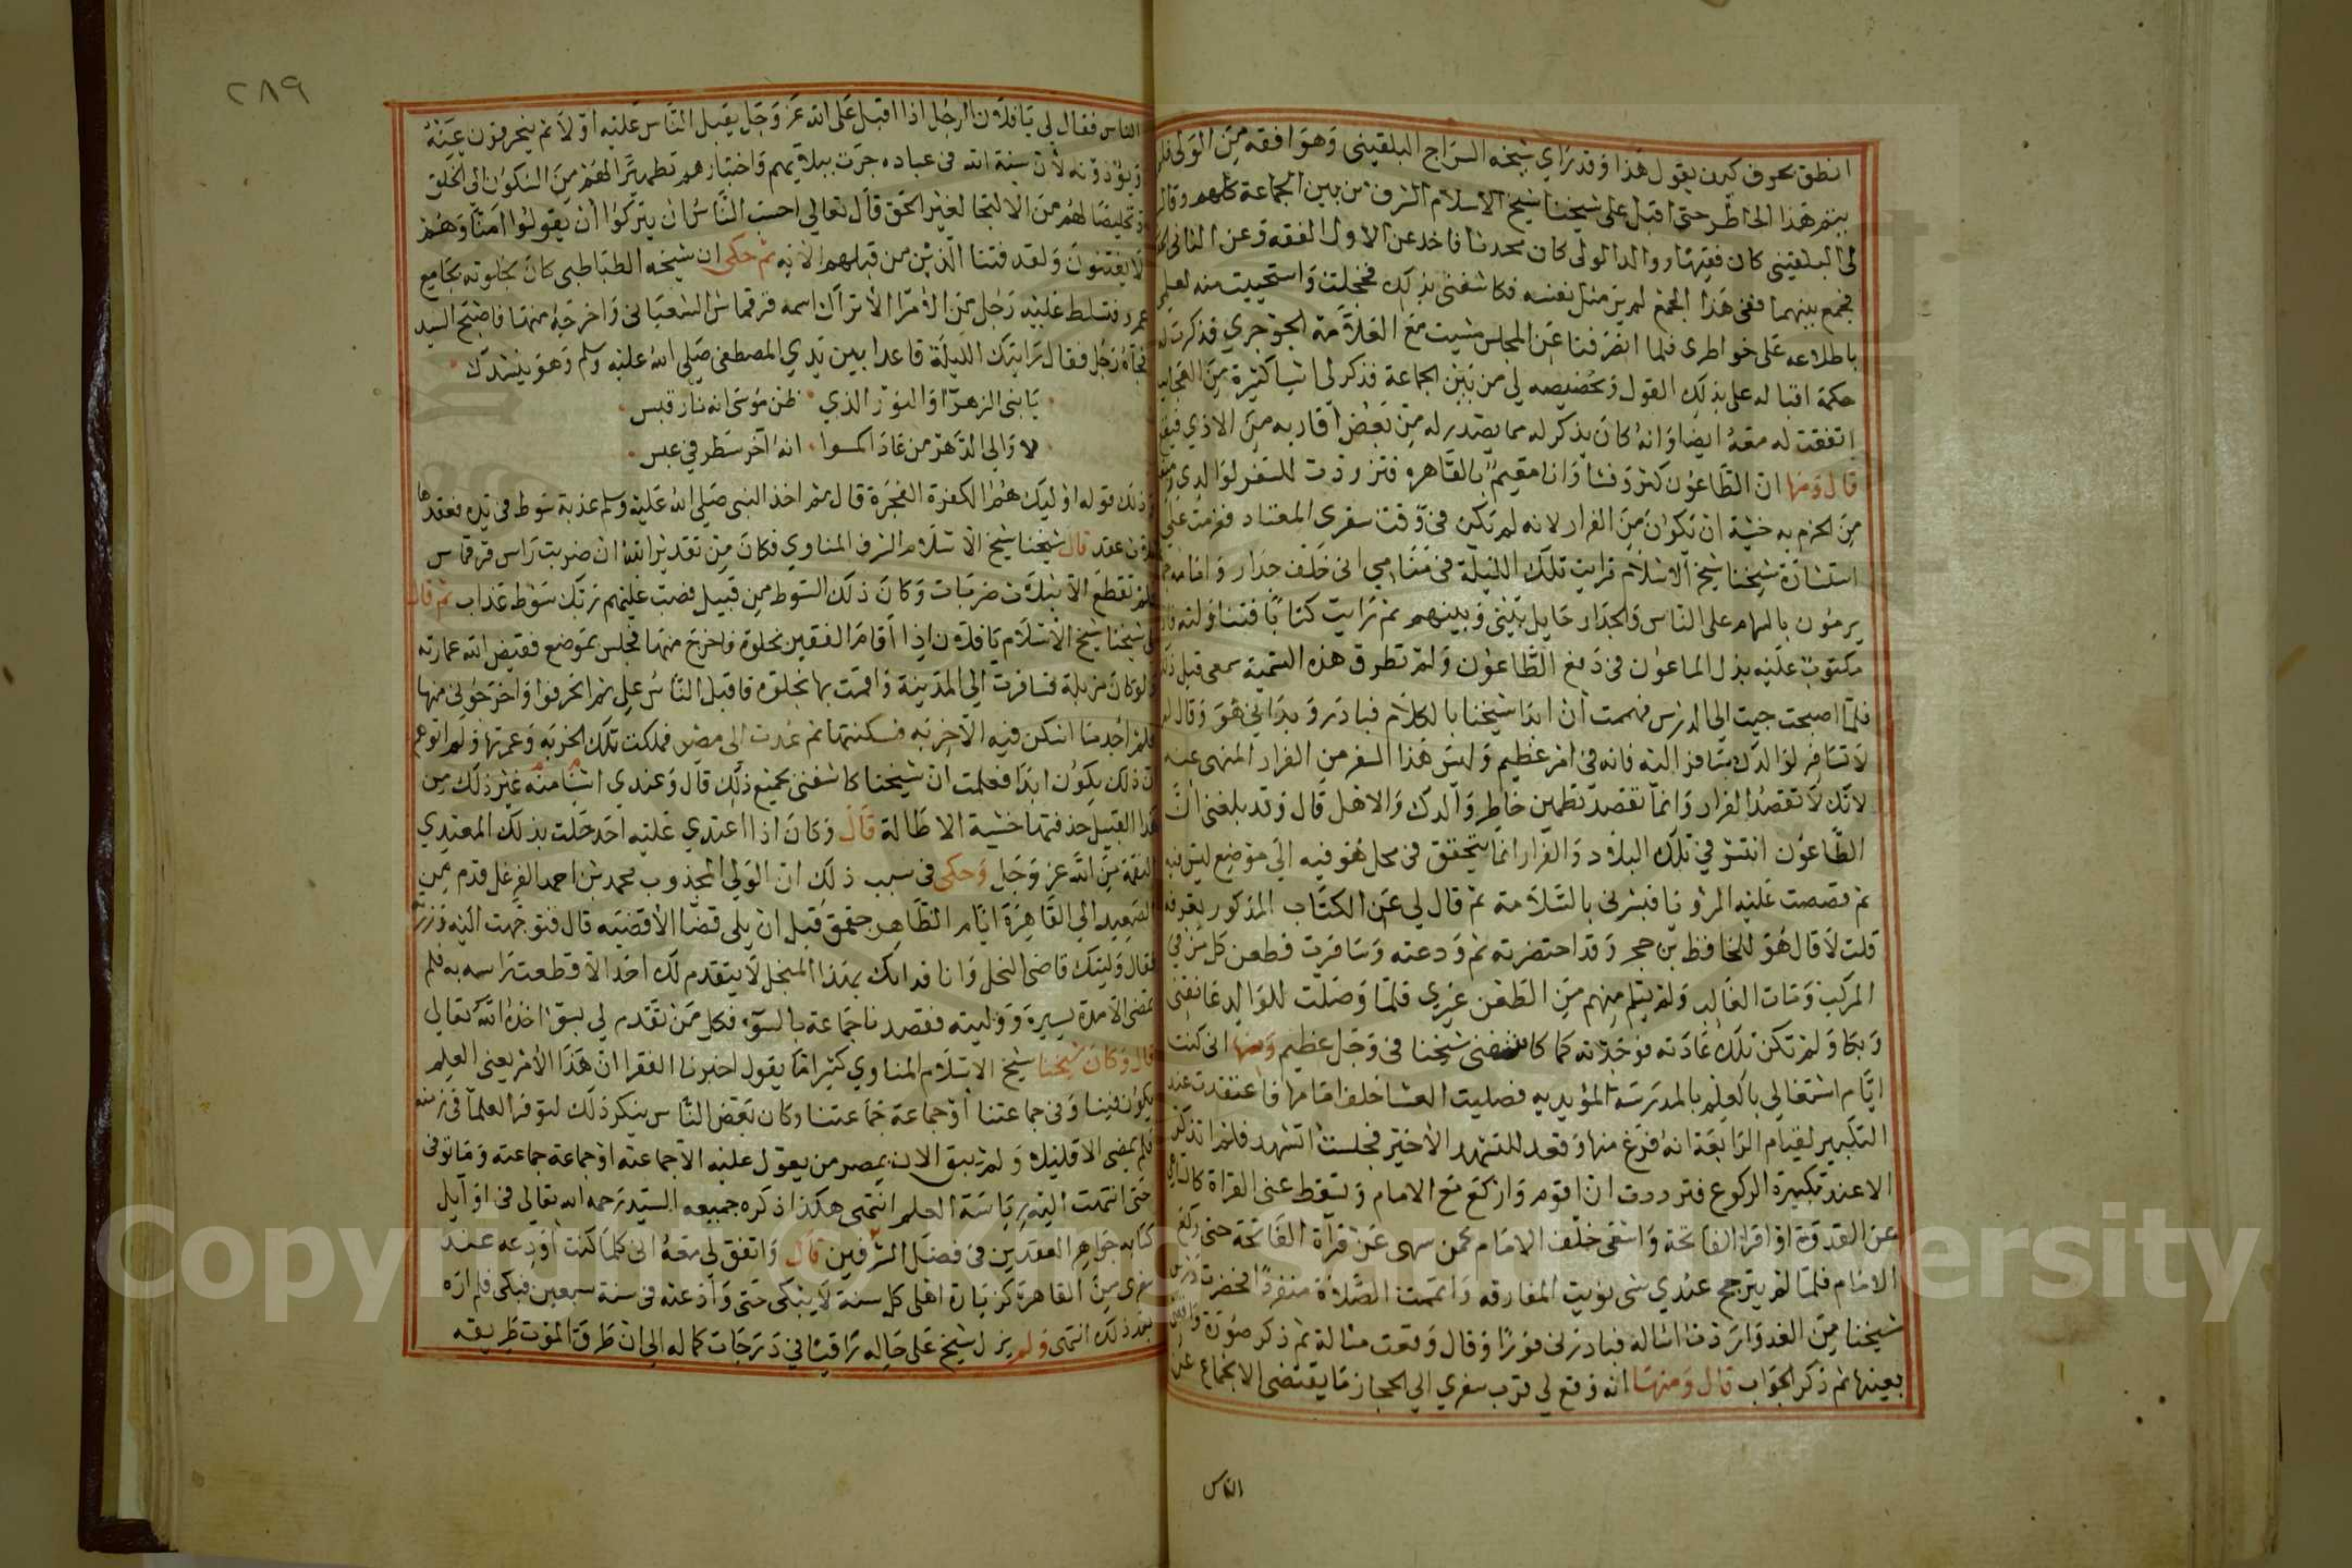 انطق بحرف كيف يقول هذا وقد راي شيخه السراج البلقيني وهو افقه من الولي فلم
يتم هذا الخاطر حتى اقبل على شيخنا شيخ الاسلام الشرف من بين الجماعة كلهم وقال
لي البلقيني كان فقيها ووالد الولي كان محدثا فاخذ عن الاول الفقه وعن الثاني
فجمع بينهما ففي هذا الجمع لم ير مثل نفسه فكاشفني بذلك فخجلت واستحييت منه لعلمي
باطلاعه على خواطري فلما انصرفنا عن المجلس مشيت مع العلامة الجوجري فذكرت له
حكمة اقباله على بذلك القول وتخصيصه لي من بين الجماعة فذكر لي اشيا كثيرة من
اتفقت له معه ايضا وانه كان يذكر له مما يصدر له من بعض اقاربه من الاذي
قال ومنها ان الطاعون كثر وفشا وانا مقيم بالقاهره فترددت للسفر لوالدي
من الجزم به خشية ان يكون من الفرار لانه لم يكن في وقت سفري المعتاد فعزمت على
استشارة شيخنا شيخ الاسلام فرايت تلك الليلة في منامي اني خلف جدار واناس
يرمون بالسهام على الناس والجدار حايل بيني وبينهم ثم رايت كتابا فتناولته
مكتوب عليه بذل الماعون في دفع الطاعون ولم تطرق هذه التسمية سمعي قبل ذلك
فلما اصبحت جيت الي الدرس فهممت ان ابدا شيخنا بالكلام فبادر وبداني هو وقال
لا تسافر لوالدك سافر اليه فانه في امر عظيم وليس هذا السفر من الفرار المنهي عنه
لانك لا تقصد الفرار وانما تقصد تطمين خاطر والدك والاهل قال وقد بلغني ان
الطاعون انتشر في تلك البلاد والفرار انما يتحقق في محل هو فيه الي موضع ليس فيه
ثم قصصت عليه المرؤيا فبشرني بالسلامة ثم قال لي عن الكتاب المذكور تعرفه
قلت لا قال هو للحافظ بن حجر وقد احتضرته ثم ودعته وسافرت فطعن كل من في
المركب ومات الغالب ولم يسلم منهم من الطعن غيري فلما وصلت للوالد عانقني
وبكا ولم تكن تلك عادته فوجدته كما كاشفني شيخنا في وجل عظيم ومنها اني كنت
ايام اشتغالي بالعلم بالمدرسة المؤيديه فصليت العشا خلف امامها فاعتقدت عند
التكبير لقيام الرابعة انه فرغ منها وقعد للتشهد الاخير فجلست اتشهد فلم اتذكر
الا عند تكبيرة الركوع فترددت ان اقوم واركع مع الامام وتسقط عني القراة
عن القدوة او اقرا الفاتحة واسعى خلف الامام كمن سهى عن قراة الفاتحة حتى ركع
الامام فلما لم يترجح عندي شي نويت المفارقه واتممت الصلاة منفردا فحضرت درس
شيخنا من الغد واردت اساله فبادرني فورا وقال وقعت مسالة ثم ذكر صورة
بعينها ثم ذكر الجواب قال ومنها انه وقع لي قرب سفري الي الحجاز ما يقتضي الانجماع عن
الناس
٢٨٩
الناس فقال لي يا فلان الرجل اذا اقبل على الله عز وجل يقبل الناس عليه اولا ثم ينحرفون عنه
ويؤذونه لان سنة الله في عباده جرت ببلائهم واختبارهم تطهيرا لهم من السكون الي الخلق
وتخليصا لهم من الالتجا لغير الحق قال تعالي احسب الناس ان يتركوا ان يقولوا امنا وهم
لا يفتنون ولقد فتنا الذين من قبلهم الايه ثم حكى ان شيخه الطباطبي كان بخلوته بجامع
عمرو فتسلط عليه رجل من الامرا الاتراك اسمه قرقماس الشعباني واخرجه منها فاصبح السيد
فجاه رجل فقال رايتك الليلة قاعدا بين يدي المصطفى صلى الله عليه وسلم وهو ينشدك
يا بني الزهرا والنور الذي ظن موسى انه نار قبس
لا والي الدهر من عاداكموا انه آخر سطر في عبس
وذلك قوله اوليك هم الكفرة الفجرة قال ثم اخذ النبي صلى الله عليه وسلم عذبة سوط في يده فعقدها
ثلاث عقد قال شيخنا شيخ الاسلام الشرف المناوي فكان من تقدير الله ان ضربت راس قرقماس
فلم تقطع الا بثلاث ضربات وكان ذلك السوط من قبيل فصب عليهم ربك سوط عذاب ثم قال
لي شيخنا شيخ الاسلام يا فلان اذا اقام الفقير بخلوة واخرج منها فجلس بموضع فقيض الله عمارته
ولو كان مزبلة فسافرت الي المدينة واقمت بها بخلوه فاقبل الناس علي ثم انحرفوا واخرجوني منها
فلم اجد ما اسكن فيه الا خربه فسكنتها ثم عدت الي مصر فملكت تلك الخربه وعمرتها ولم اتوهم
ان ذلك يكون ابدا فعلمت ان شيخنا كاشفني بجميع ذلك قال وعندي اشيا منه غير ذلك من
هذا القبيل حذفتها خشية الاطالة قال وكان اذا اعتدي عليه احد حلت بذلك المعتدي
النقمة من الله عز وجل وحكى في سبب ذلك ان الولي المجذوب محمد بن احمد الفرغل قدم من
الصعيد الي القاهرة ايام الظاهر جقمق قبل ان يلي قضا الاقضيه قال فتوجهت اليه وزرته
فقال وليتك قاضي النحل وانا فدانك بهذا المنجل لا يتقدم لك احد الا قطعت راسه به فلم
تمض الا مدة يسيرة ووليته فقصدنا جماعة بالسوء فكل من تقدم لي بسوء اخذه الله تعالي
قال وكان شيخنا شيخ الاسلام المناوي كثيرا ما يقول اخبرنا الفقرا ان هذا الامر يعني العلم
يكون فينا وفي جماعتنا او جماعة جماعتنا وكان بعض الناس ينكر ذلك لتوفر العلما في زمنه
فلم يمض الا قليلا ولم يبق الان بمصر من يعول عليه الا جماعته او جماعة جماعته وما توفى
حتى انتهت اليه رياسة العلم انتهى هكذا ذكره جميعه السيد رحمه الله تعالي في اوايل
كتابه جواهر العقدين في فضل الشرفين قال واتفق لي معه اني كلما كنت اودعه عند
سفري من القاهرة لزيارة اهلي كل سنة لا يبكي حتى وادعته في سنة سبعين فبكى فلم اره
بعد ذلك انتهى ولم يزل شيخ على حاله راقيا في درجات كماله الي ان طرق الموت طريقه
Copyright © King Saud University